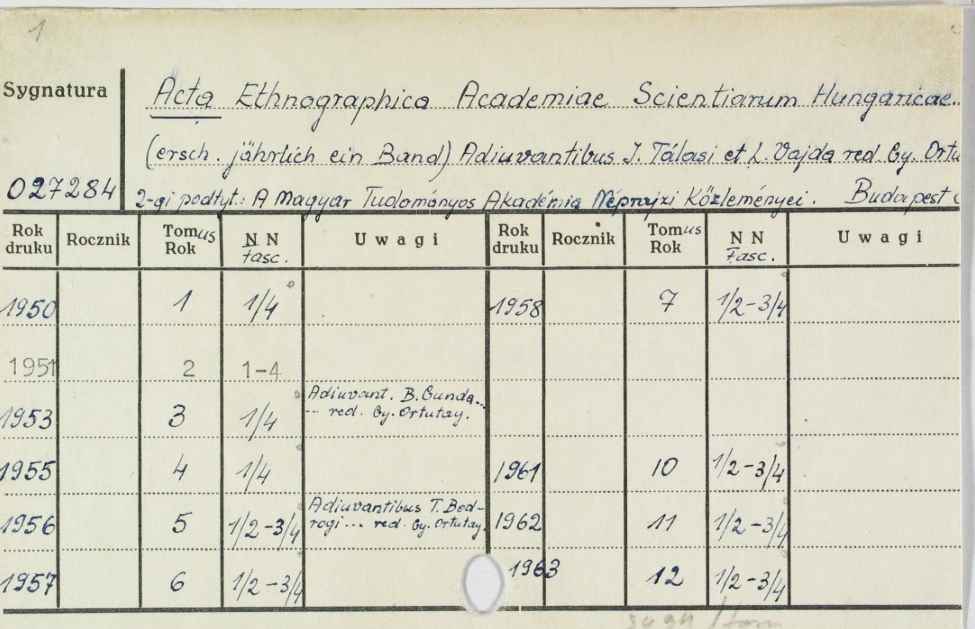 1
Sygnatura
Acta Ethnographica Academiae Scientiarum Hungaricae
(ersch. jährlich ein Band) Adiuvantibus I. Tálasi et L. Vajda red. Gy. Ortu
027284 2-gi podtyt.: A Magyar Tudományos Akadémia Néprajzi Közleményei. Budapest
Rok druku Rocznik Tomus Rok NN fasc. Uwagi Rok druku Rocznik Tomus Rok NN Fasc. Uwagi
1950 1 1/4 1958 7 1/2-3/4
1951 2 1-4
1953 3 1/4 Adiuvant. B. Gunda... ... red. Gy. Ortutay.
1955 4 1/4 1961 10 1/2-3/4
1956 5 1/2-3/4 Adiuvantibus T. Bodrogi... red. Gy. Ortutay. 1962 11 1/2-3/4
1957 6 1/2-3/4 1963 12 1/2-3/4